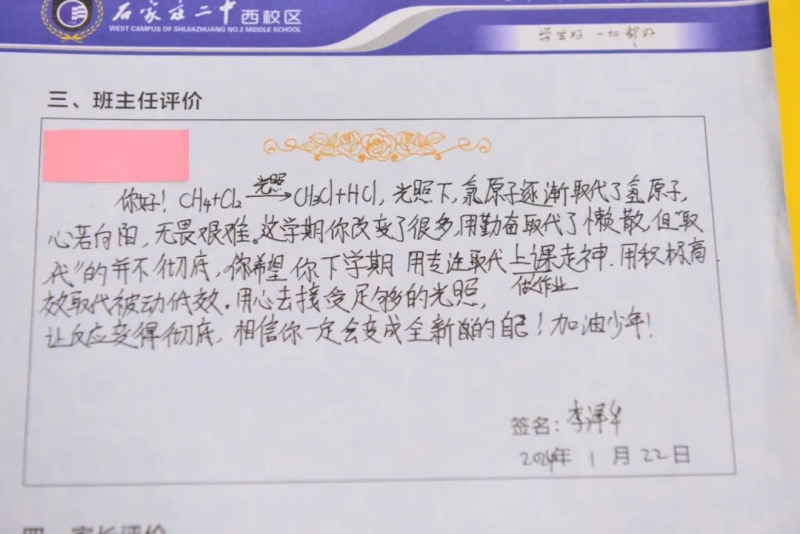 石家庄二中西校区
WEST CAMPUS OF SHIJIAZHUANG NO.2 MIDDLE SCHOOL
学生好 一切都好
三、班主任评价
你好！CH4+Cl2 光照→ CH3Cl+HCl，光照下，氯原子逐渐取代了氢原子，
心若向阳，无畏艰难。这学期你改变了很多，用勤奋取代了懒散，但“取
代”的并不彻底，你希望你下学期用专注取代上课走神，用积极高
效取代被动低效。用心去接受足够的光照，
做作业
让反应变得彻底，相信你一定会变成全新的自己！加油少年！
签名：李泽华
2024年 1月22日
四、家长评价